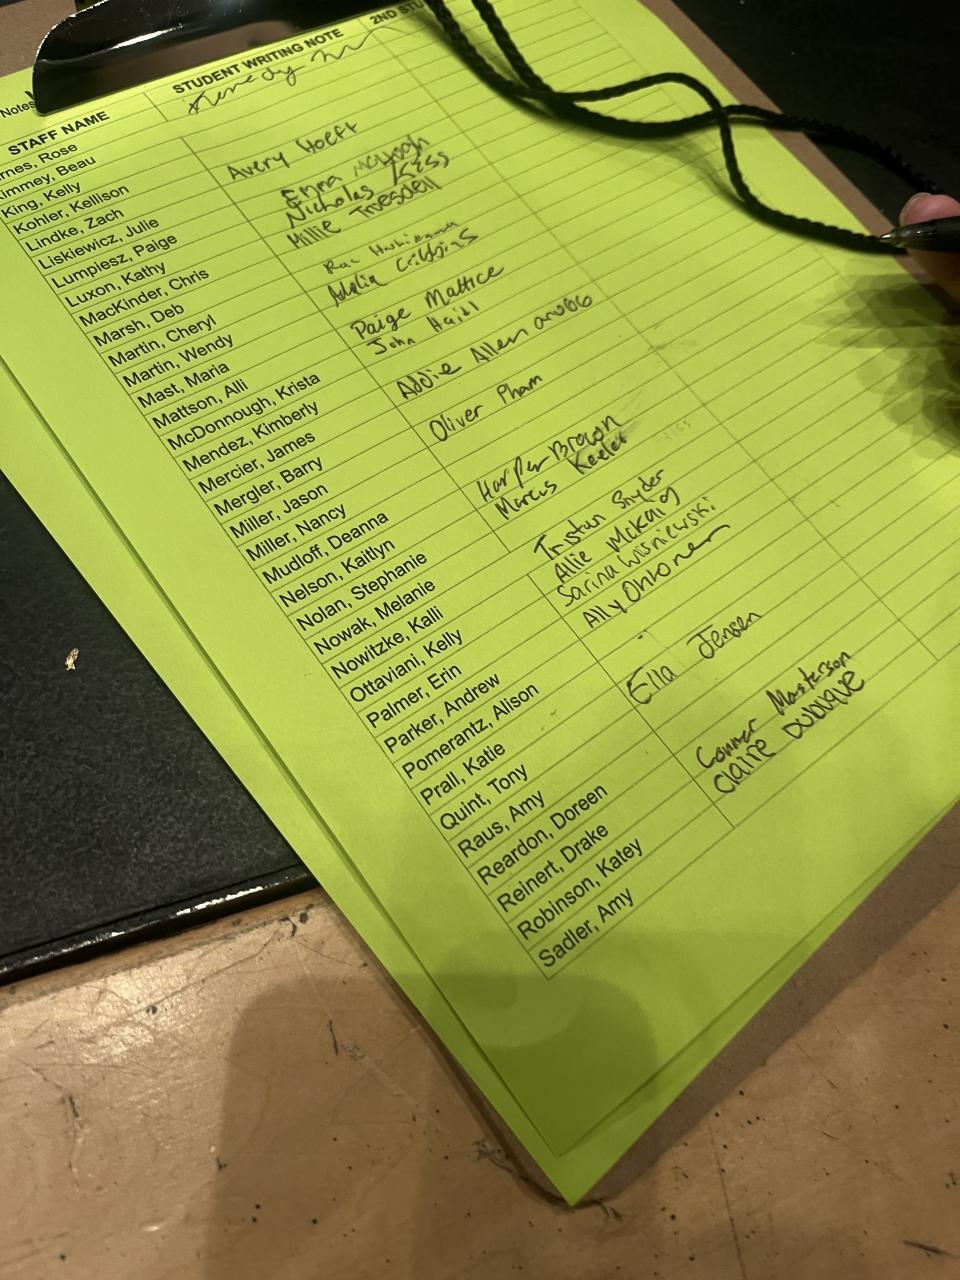 Notes
STAFF NAME
STUDENT WRITING NOTE
2ND STU
rnes, Rose
immey, Beau
King, Kelly
Kohler, Kellison
Lindke, Zach
Liskiewicz, Julie
Lumpiesz, Paige
Luxon, Kathy
MacKinder, Chris
Marsh, Deb
Martin, Cheryl
Martin, Wendy
Mast, Maria
Mattson, Alli
McDonnough, Krista
Mendez, Kimberly
Mercier, James
Mergler, Barry
Miller, Jason
Miller, Nancy
Mudloff, Deanna
Nelson, Kaitlyn
Nolan, Stephanie
Nowak, Melanie
Nowitzke, Kalli
Ottaviani, Kelly
Palmer, Erin
Parker, Andrew
Pomerantz, Alison
Prall, Katie
Quint, Tony
Raus, Amy
Reardon, Doreen
Reinert, Drake
Robinson, Katey
Sadler, Amy
Kenedy
Avery Hoeft
Emma
Nicholas Kiss
Millie Truesdell
Rae
Cribbins
Paige Mattice
John Haidl
Addie Allen
Oliver Pham
Harper Brown
Marcus Keeler
Tristan Snyder
Allie McKaig
Sarina Wisniewski
Ally
Ella Jensen
Connor Masterson
Claire Dubuque